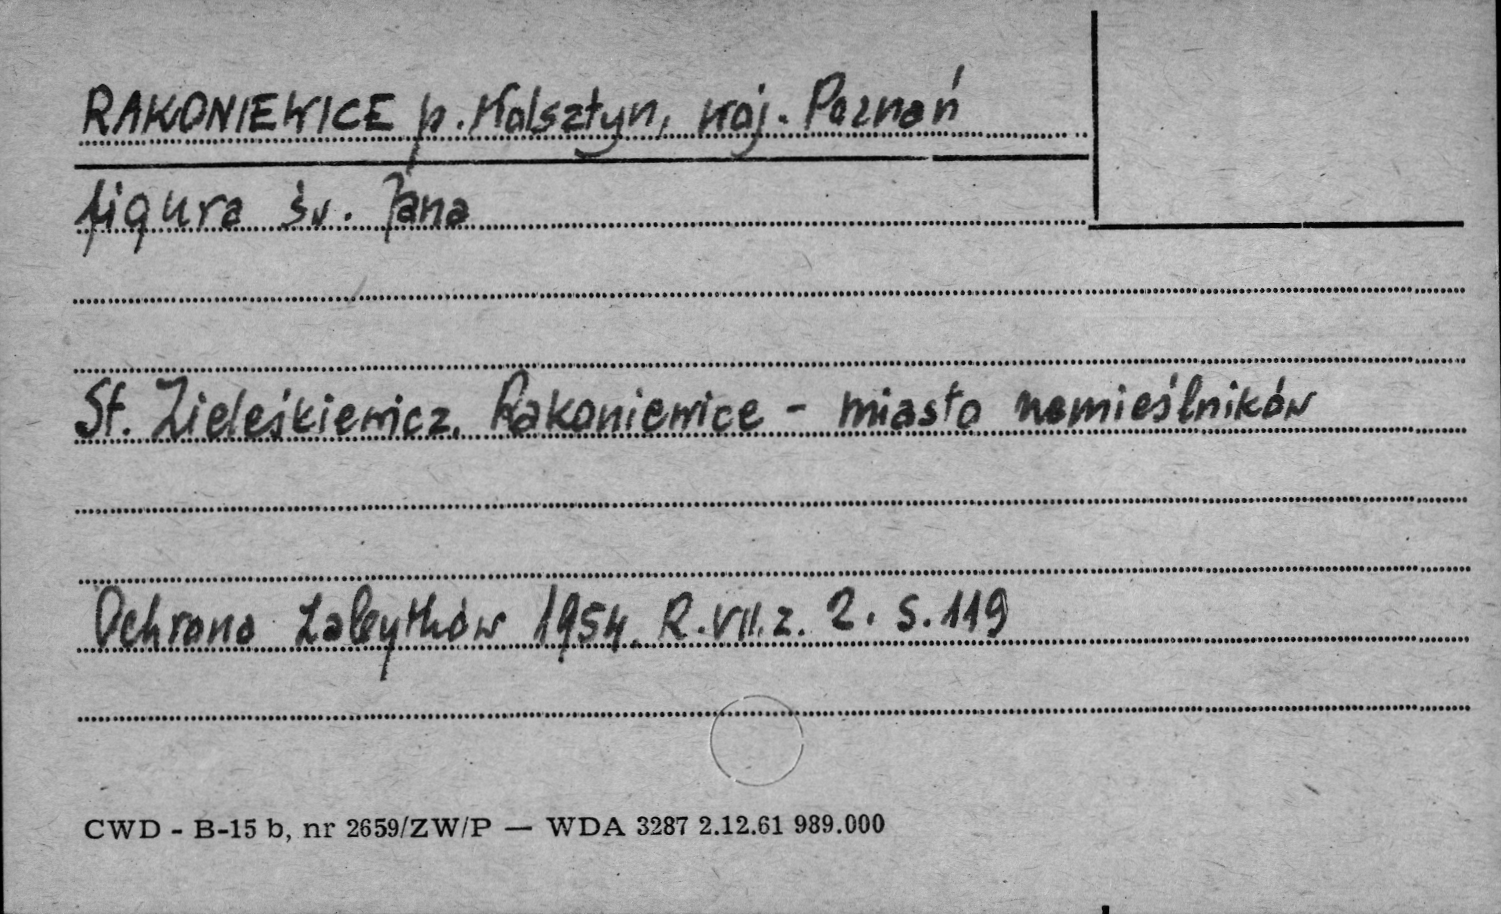 RAKONIEWICE p. Wolsztyn, woj. Poznań
figura św. Jana
St. Zieleśkiewicz, Rakoniewice - miasto rzemieślników
Ochrona Zabytków 1954. R. VII. z. 2. s. 119
CWD - B-15 b, nr 2659/ZW/P — WDA 3287 2.12.61 989.000